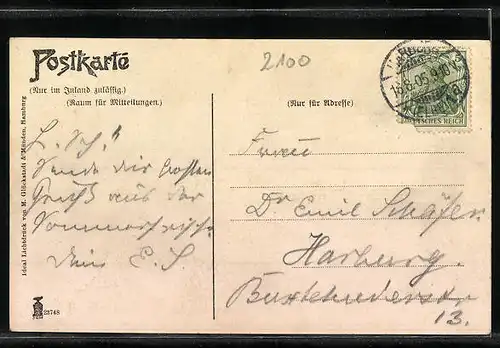 Postkarte
(Nur im Inland zulässig.)
(Raum für Mitteilungen.)
(Nur für Adresse)
2100
16.6.05.9-10
DEUTSCHES REICH
L. Sch.!
Sende dir besten
Gruß aus der
Sommerfrische
Dein E. S
Frau
Dr Emil Schäfer
Harburg.
Buxtehuderstr
13.
Ideal Lichtdruck von M. Glückstadt & Münden, Hamburg
23748